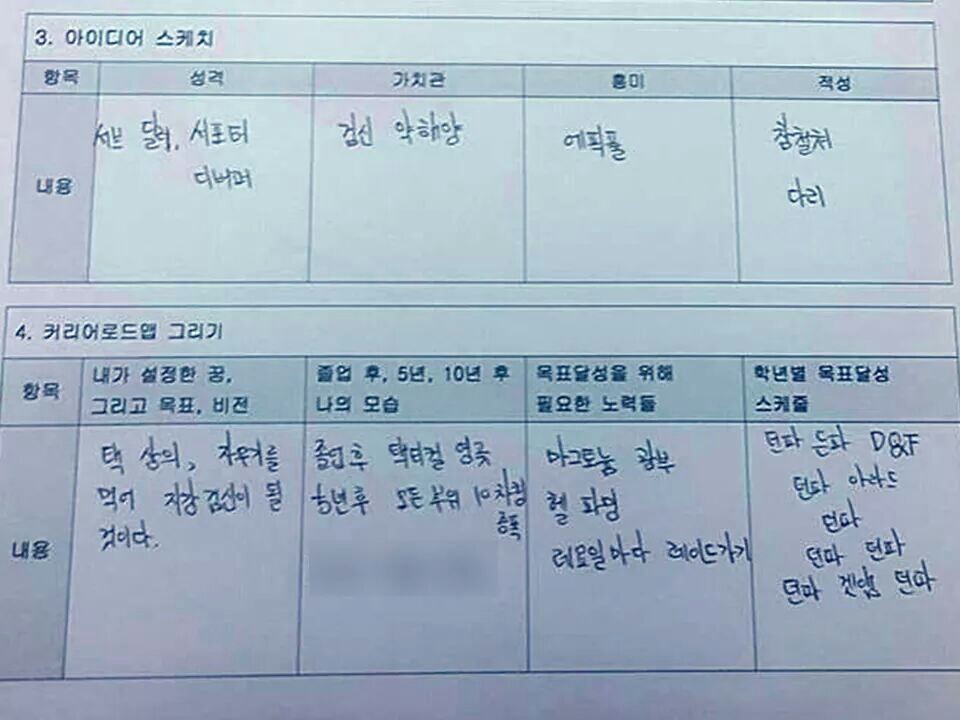 3. 아이디어 스케치
항목 성격 가치관 흥미 적성
내용
서브 딜러, 서포터
디버퍼
검신 약해양
에픽풀
참철처
다리
4. 커리어로드맵 그리기
항목
내가 설정한 꿈,
그리고 목표, 비전
졸업 후, 5년, 10년 후
나의 모습
목표달성을 위해
필요한 노력들
학년별 목표달성
스케줄
내용
택 상의, 자무기를
먹어 지강검신이 될
것이다.
졸업후 택티컬 영곳
5년후 모든부위 10차창
증폭
마그토늄 광부
헬 파밍
레요일마다 레이드가기
던파 든파 D&F
던파 아라드
던파
던파 던파
던파 겐앱 던파